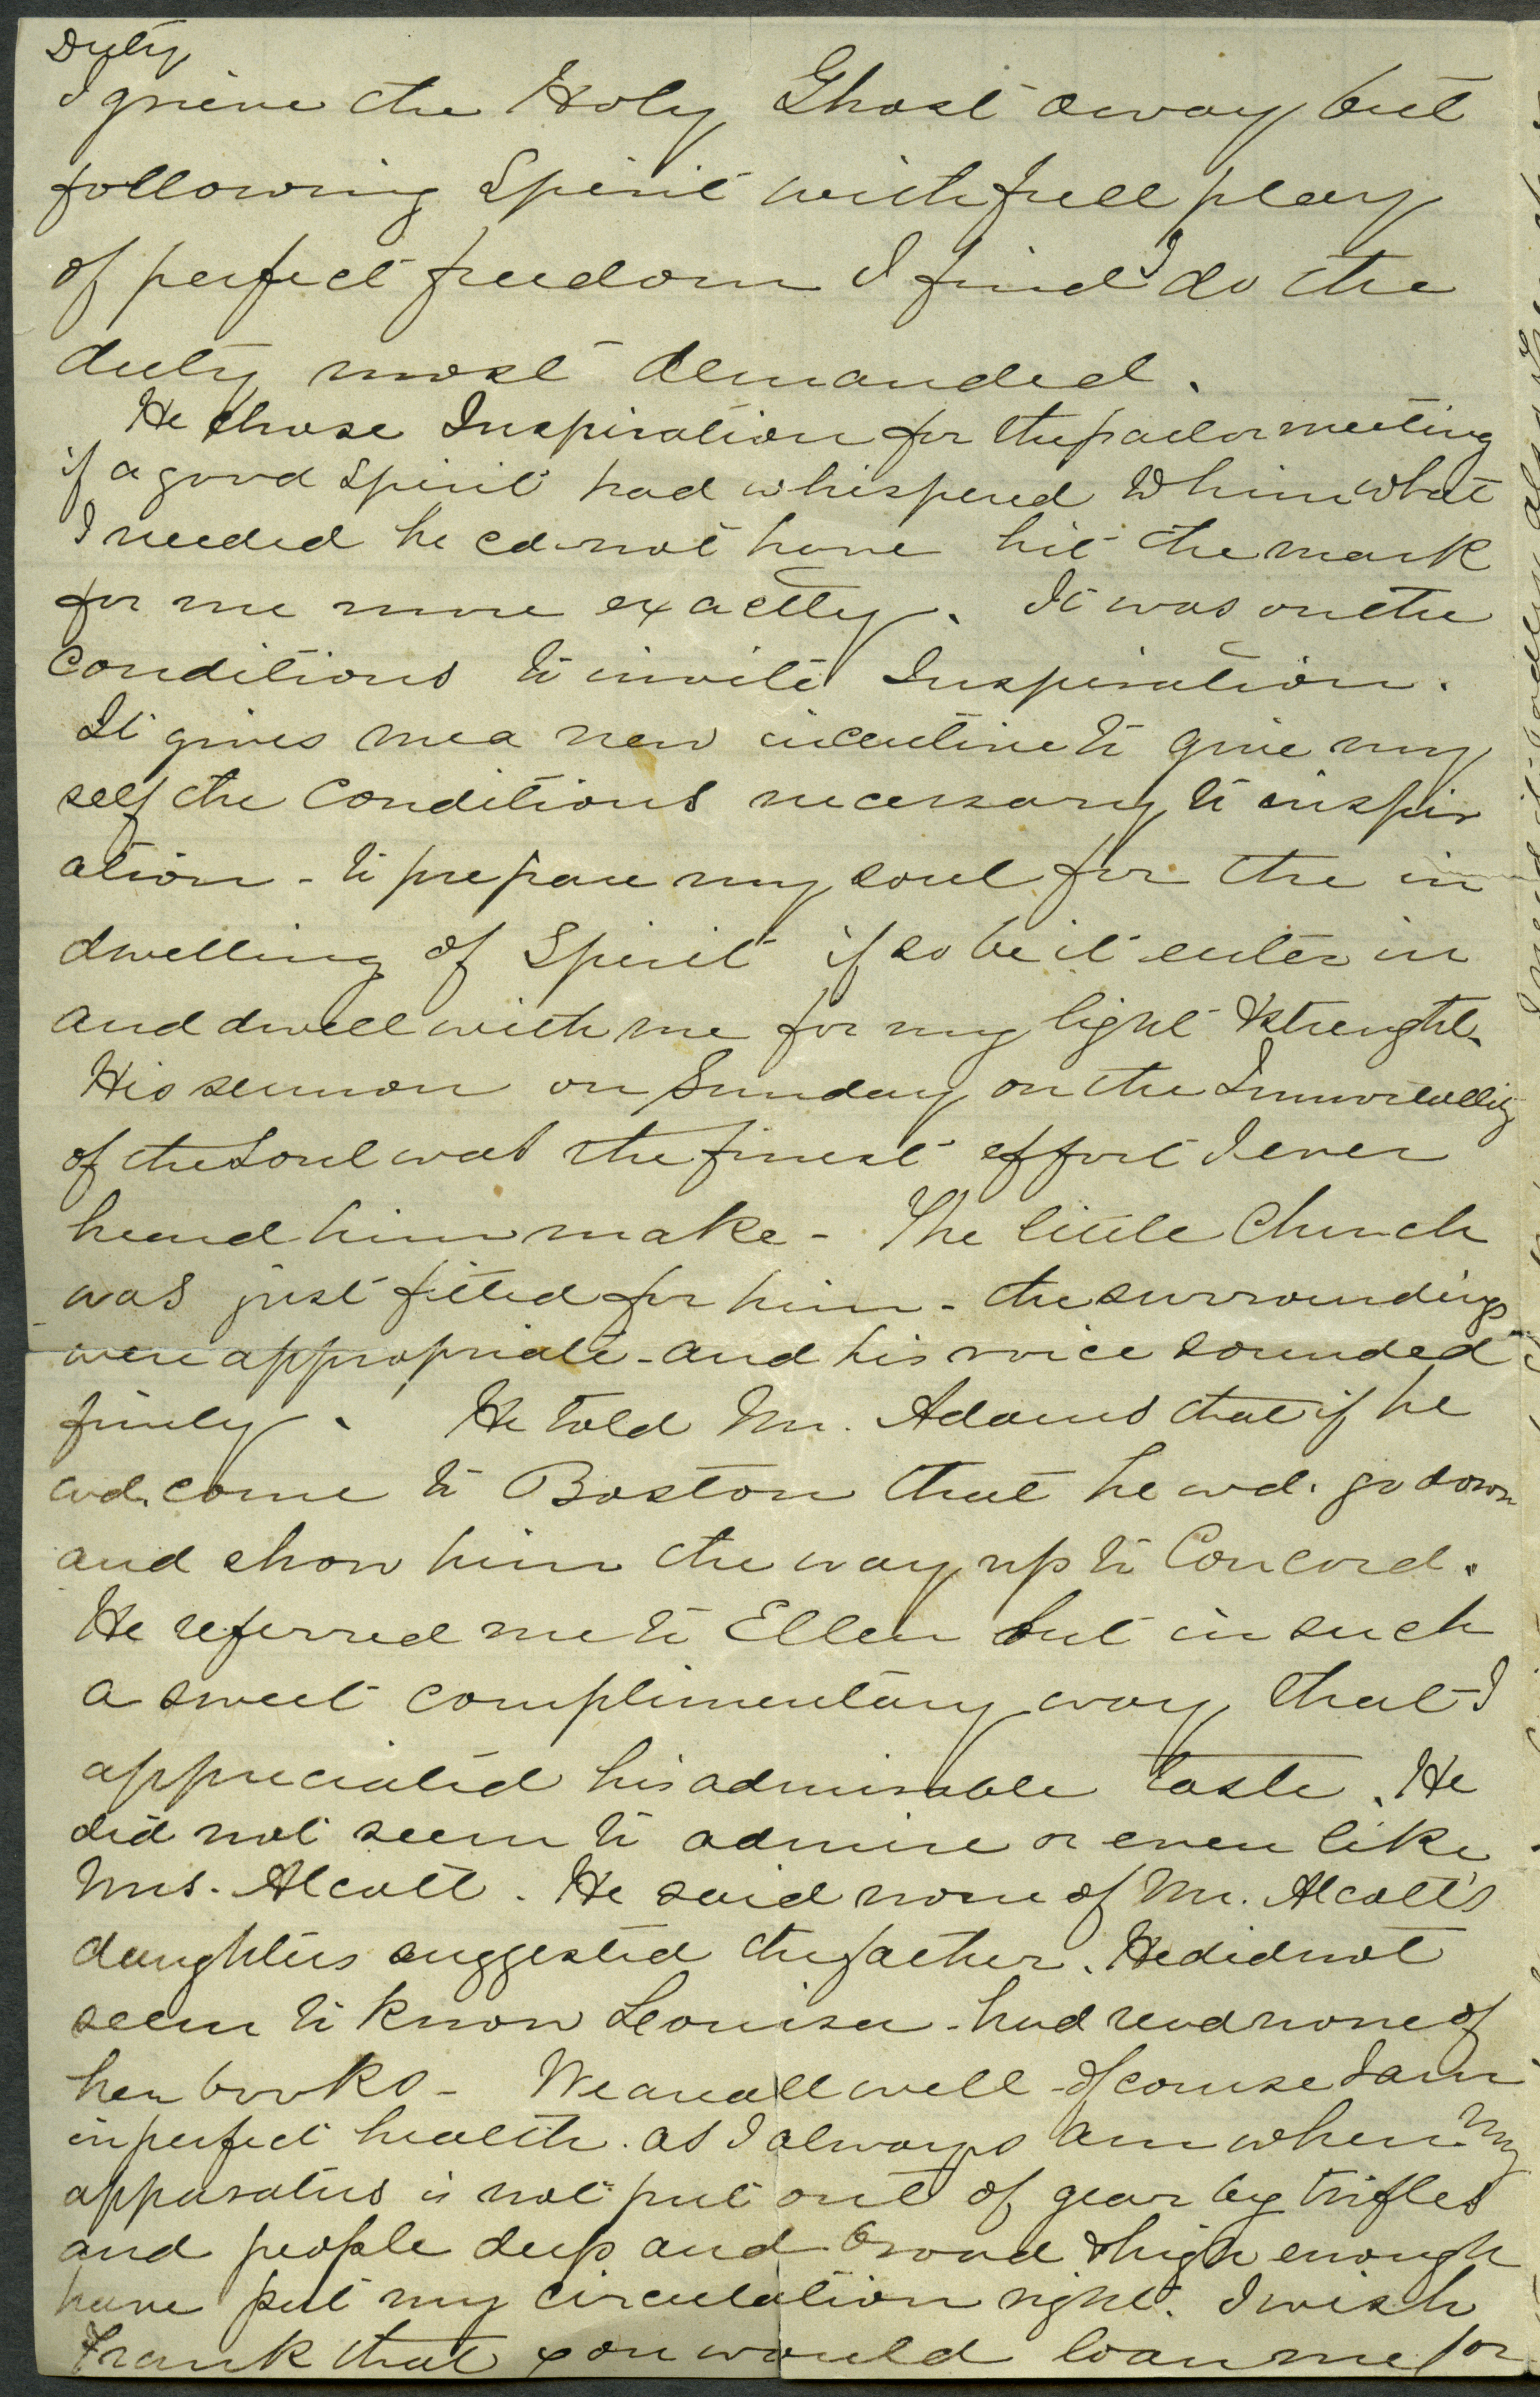 Duty
I grieve the Holy Ghost away but
following Spirit with full play
of perfect freedom I find I do the
duty most demanded.
He chose Inspiration for the parlor meeting
if a good spirit had whispered to him what
I needed he cd. not have hit the mark
for me more exactly. It was on the
conditions to invite Inspiration.
It gives me a new incentive to give my
self the conditions necessary to inspir
ation - to prepare my soul for the in
dwelling of Spirit if so be it enter in
and dwell with me for my light & strength.
His sermon on Sunday on the Immortality
of the Soul was the finest effort I ever
heard him make - The little Church
was just fitted for him - the surroundings
were appropriate - and his voice sounded
finely. He told Mr. Adams that if he
wd. come to Boston that he wd. go down
and show him the way up to Concord.
He referred me to Ellen but in such
a sweet complimentary way that I
appreciated his admirable taste. He
did not seem to admire or even like
Mrs. Alcott. He said none of Mr. Alcott's
daughters suggested the father. He did not
seem to know Louisa - had read none of
her books - We are all well - of course I am
in perfect health. as I always am when my
apparatus is not put out of gear by trifles
and people deep and broad & high enough
have put my circulation right. I wish
Frank that you would loan me for